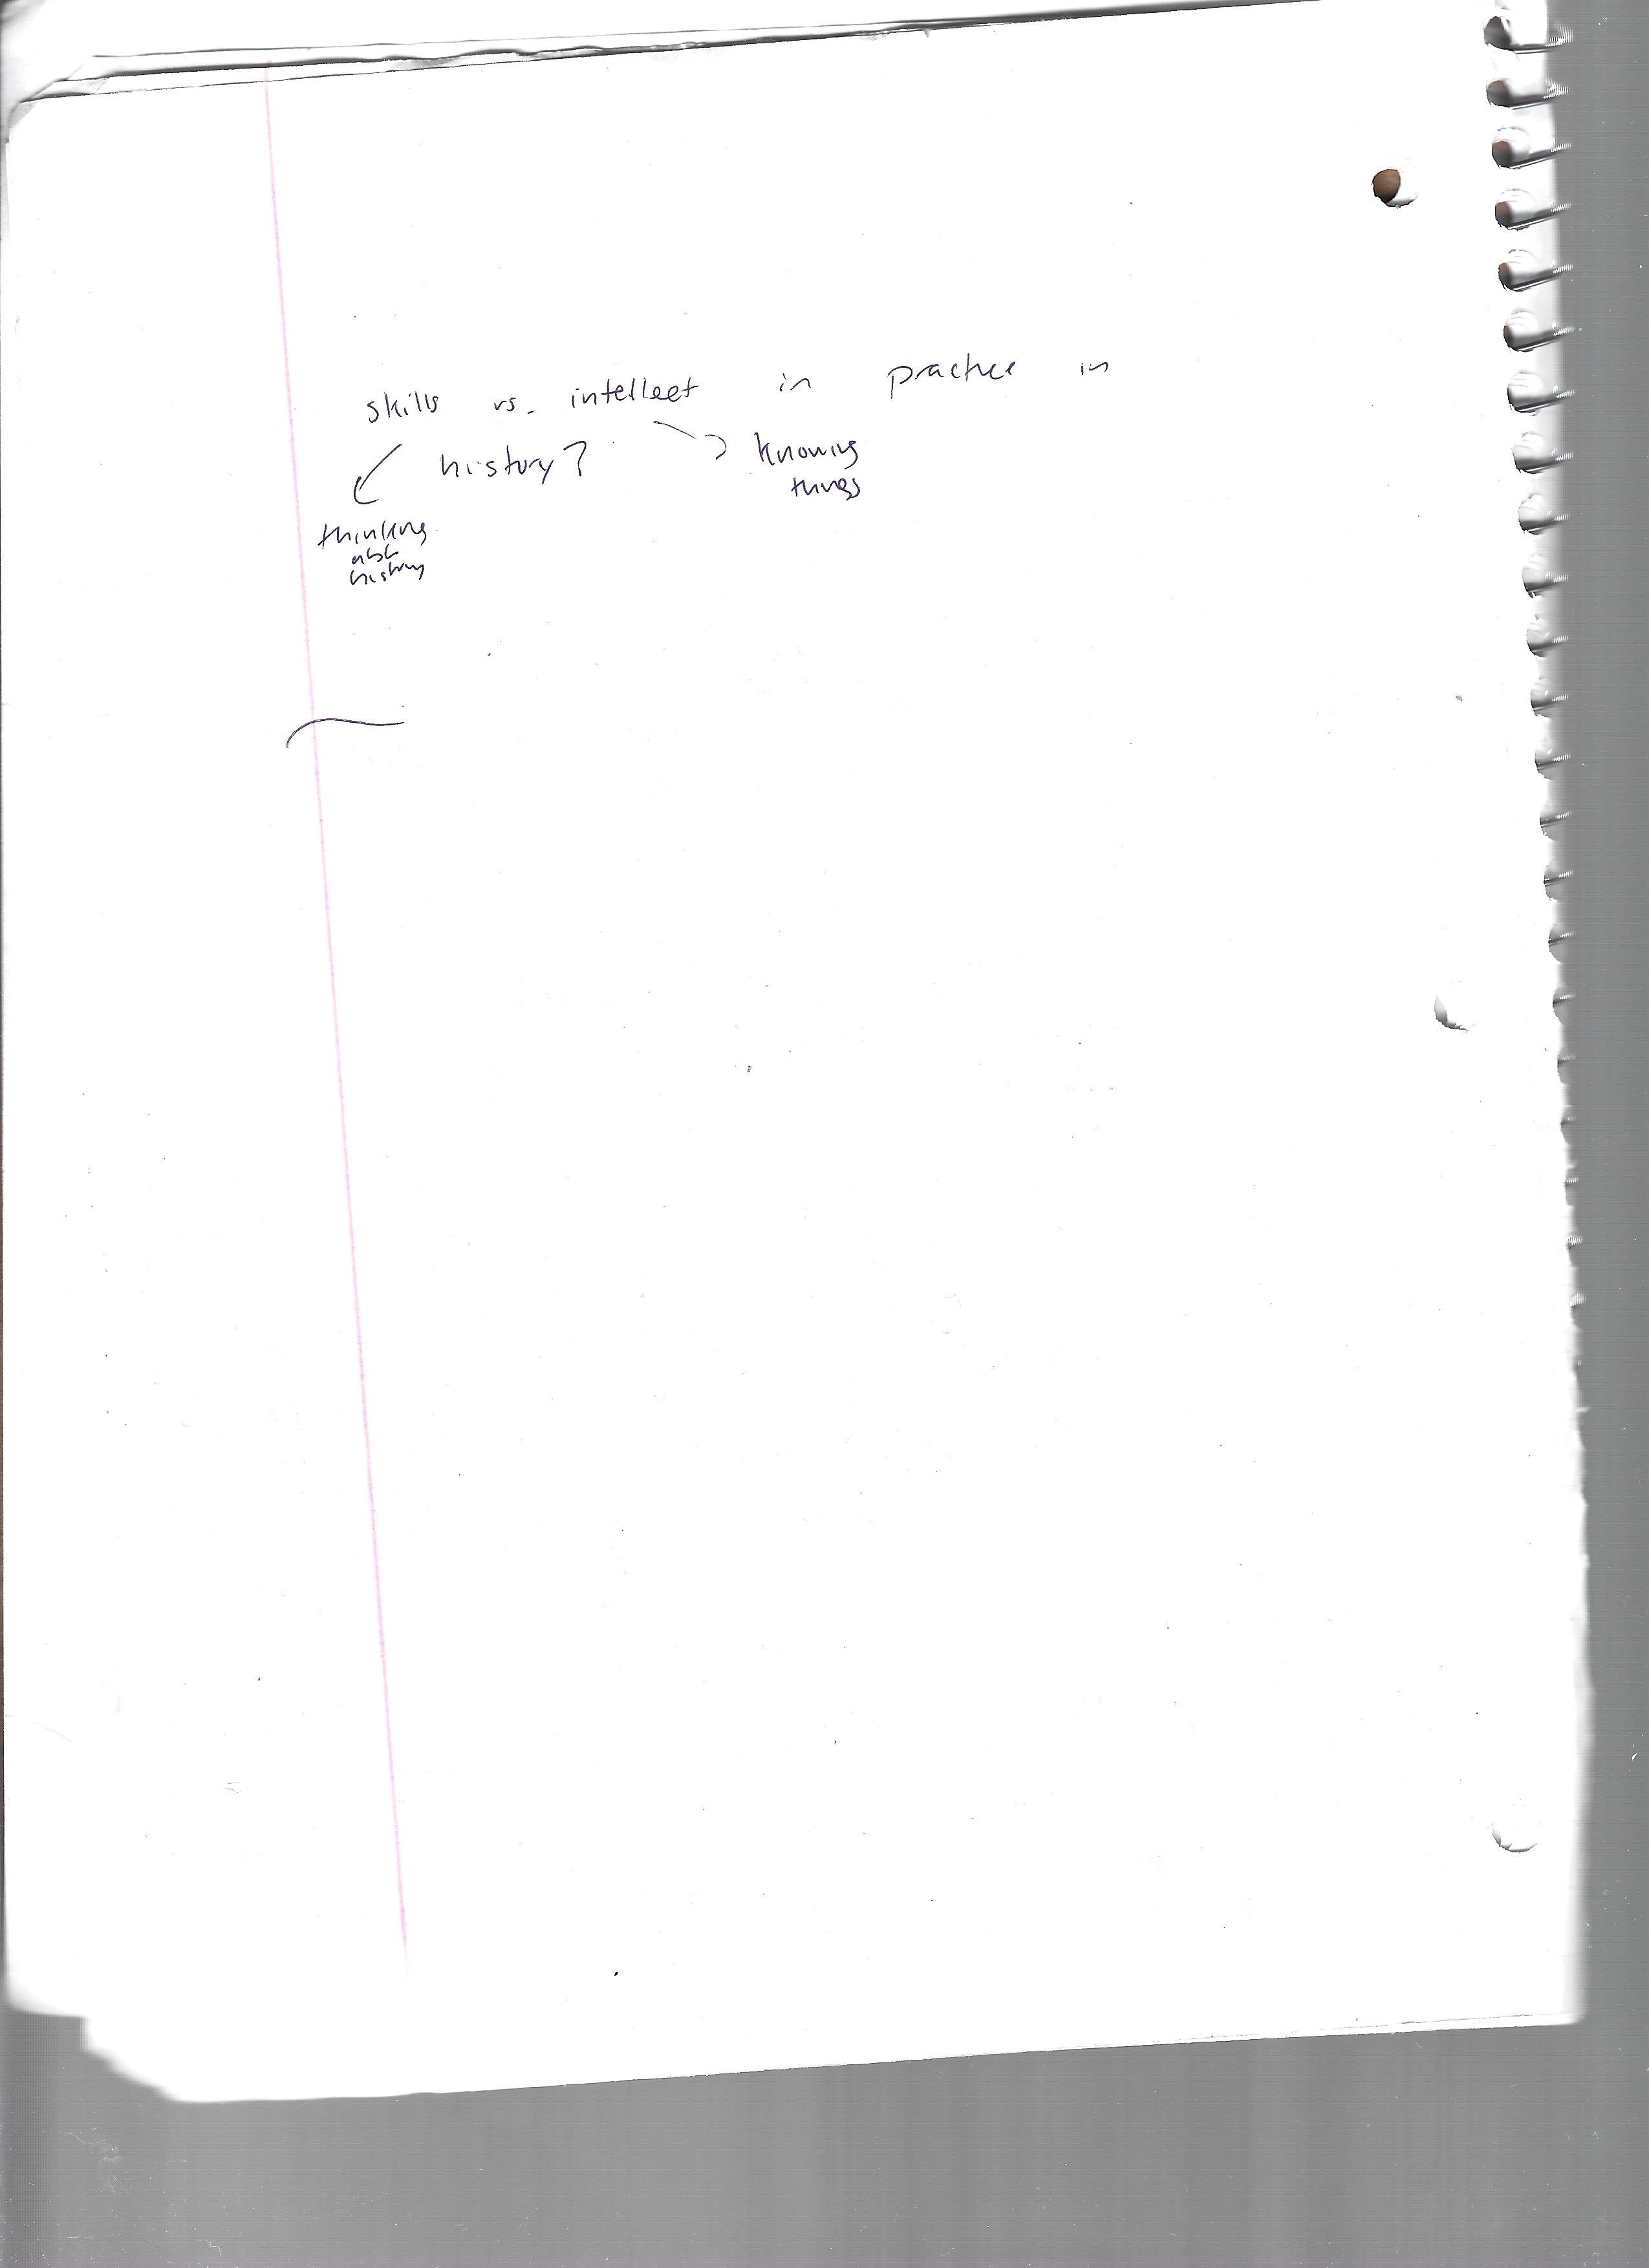 skills vs. intellect in practice in
history?
knowing
things
thinking
abt
history